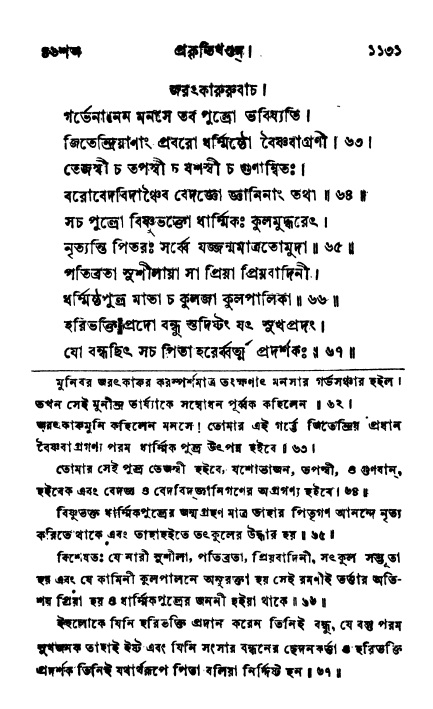 ৪৬শঅ প্রকৃতিখণ্ডম্। ১১৩১
জরৎকারুরুবাচ।
গর্ভেনানেন মনসে তব পুত্রো ভবিষ্যতি।
জিতেন্দ্রিয়াণাং প্রবরো ধর্ম্মিষ্ঠো বৈষ্ণবাগ্রণী। ৬৩।
তেজস্বী চ তপস্বী চ যশস্বী চ গুণান্বিতঃ।
বরোবেদবিদাঞ্চৈব বেদজ্ঞো জ্ঞানিনাং তথা॥ ৬৪॥
সচ পুত্রো বিষ্ণুভক্তো ধার্ম্মিকঃ কুলমুদ্ধরেৎ।
নৃত্যন্তি পিতরঃ সর্ব্বে যজ্জন্মমাত্রতোমুদা॥ ৬৫॥
পতিব্রতা সুশীলায়া সা প্রিয়া প্রিয়বাদিনী।
ধর্ম্মিষ্ঠপুত্র মাতা চ কুলজা কুলপালিকা॥ ৬৬॥
হরিভক্তিপ্রদো বন্ধু স্তদিষ্টং যৎ সুখপ্রদং।
যো বন্ধছিৎ সচ পিতা হরের্ব্বর্ত্ম প্রদর্শকঃ॥ ৬৭॥
মুনিবর জরৎকারুর করস্পর্শমাত্র তৎক্ষণাৎ মনসার গর্ভসঞ্চার হইল।
তখন সেই মুনীন্দ্র ভার্য্যাকে সম্বোধন পূর্ব্বক কহিলেন॥ ৬২।
জরৎকারুমুনি কহিলেন মনসে! তোমার এই গর্ভে জিতেন্দ্রিয় প্রধান
বৈষ্ণবাগ্রগণ্য পরম ধার্ম্মিক পুত্র উৎপন্ন হইবে। ৬৩।
তোমার সেই পুত্র তেজস্বী হইবে, যশোভাজন, তপস্বী, ও গুণবান্,
হইবেক এবং বেদজ্ঞ ও বেদবিদজ্ঞানিগণের অগ্রগণ্য হইবে। ৬৪॥
বিষ্ণুভক্ত ধার্ম্মিকপুত্রের জন্ম গ্রহণ মাত্র তাহার পিতৃগণ আনন্দে নৃত্য
করিতে থাকে এবং তাহাহইতে তৎকুলের উদ্ধার হয়॥ ৬৫।
বিশেষতঃ যে নারী সুশীলা, পতিব্রতা, প্রিয়বাদিনী, সৎকুল সম্ভূতা
হয় এবং যে কামিনী কুলপালনে অনুরক্তা হয় সেই রমণীই ভর্ত্তার অতি-
শয় প্রিয়া হয় ও ধার্ম্মিকপুত্রের জননী হইয়া থাকে॥ ৬৬॥
ইহলোকে যিনি হরিভক্তি প্রদান করেন তিনিই বন্ধু, যে বস্তু পরম
সুখজনক তাহাই ইষ্ট এবং যিনি সংসার বন্ধনের ছেদনকর্ত্তা ও হরিভক্তি
প্রদর্শক তিনিই যথার্থরূপে পিতা বলিয়া নির্দ্দিষ্ট হন॥ ৬৭॥